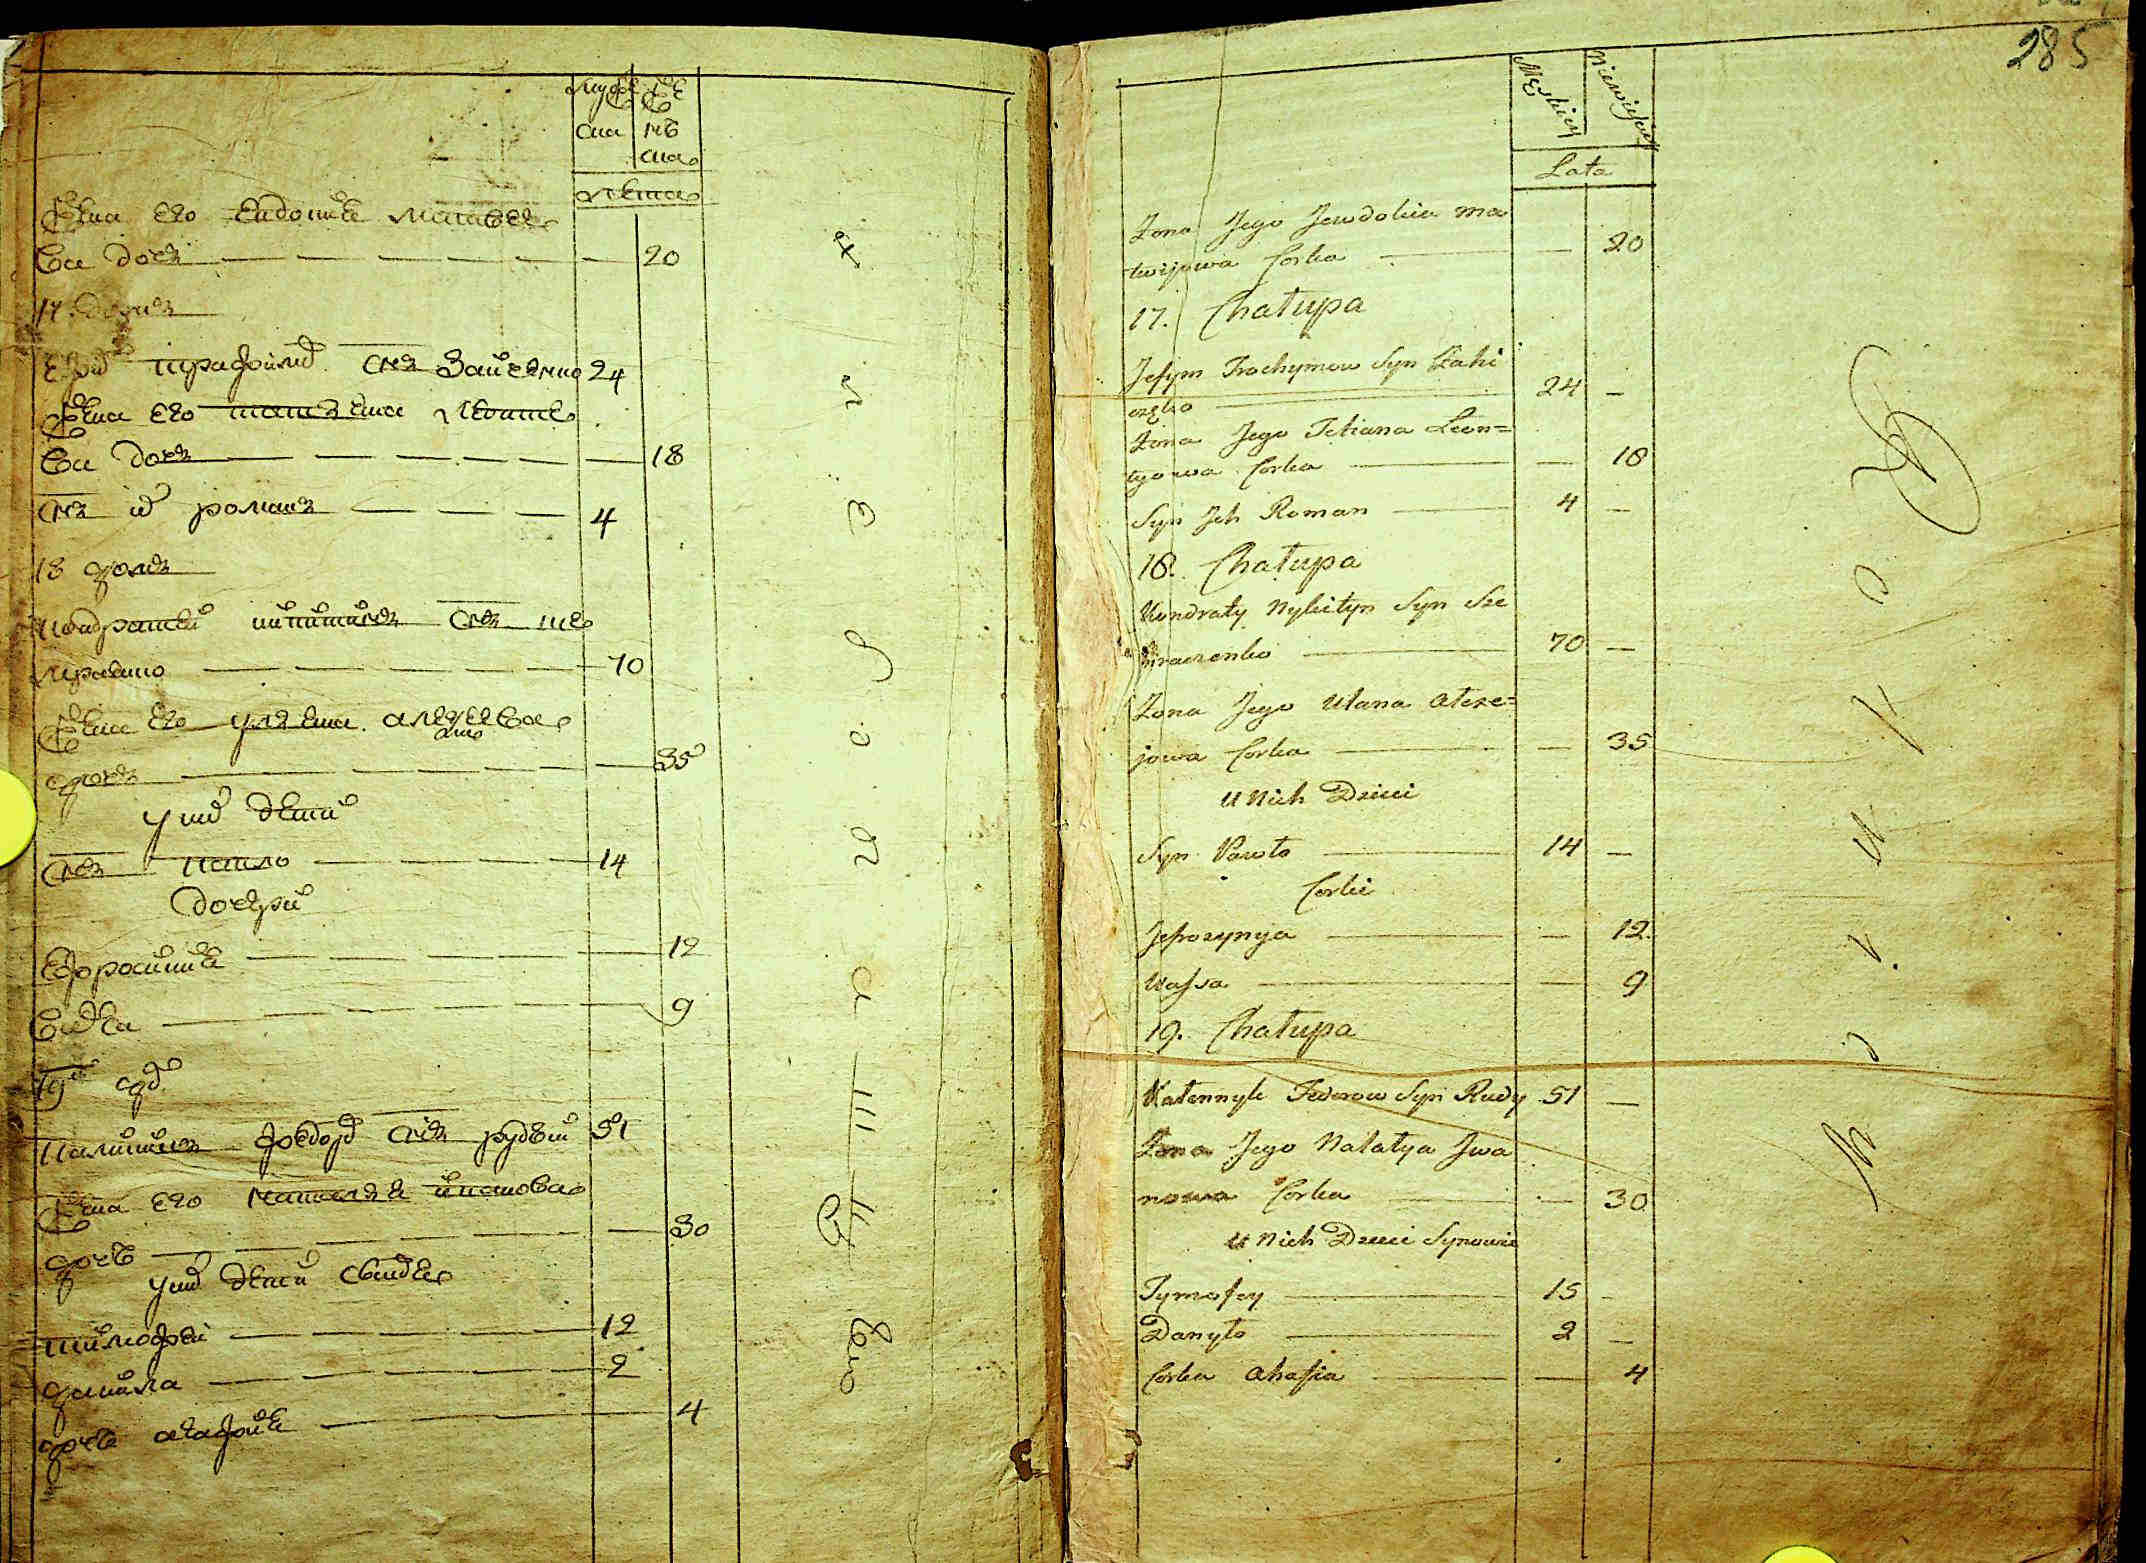 муже
ска
же
нс
ска
лета
жена его евдокия матвее
ва дочъ 20
17. домъ
ефим трофимов снъ заиченко 24
жена его татъяна леонте
ва дочъ 18
снъ их романъ 4
18 домъ
кондратей никитинъ снъ ше
мраенко 70
жена его улъяна алексеева
дочъ 35
у них дети
снъ павло 14
дочери
ефросиния 12
васса 9
19й дом
калиникъ федоров снъ рудый 51
жена его наталъя иванова
дочъ 30
у них дети
тимофей 12
данила 2
дочъ агафия 4
285
Męskiey
Niewieściey
Lata
Żona Jego Jewdokia Ma
twijowa Corka — 20
17. Chałupa
Jefym Trochymow Syn Zahi
częko 24 —
Żona Jego Tetiana Leon=
tyowa Corka — 18
Syn Jch Roman 4 —
18. Chałupa
Kondraty Nykityn Syn Sze
mraczenko 70 —
Żona Jego Ulana Alexe=
jowa Corka — 35
U Nich Dzieci
Syn Pawło 14 —
Corki
Jefrozynya — 12.
Wassa — 9
19. Chałupa
Kałennyk Fedorow Syn Rudy 51 —
Żona Jego Natalya Jwa
nowa Corka — 30
U Nich Dzieci Synowie
Tymofey 15 —
Danyło 2 —
Corka Ahafia — 4